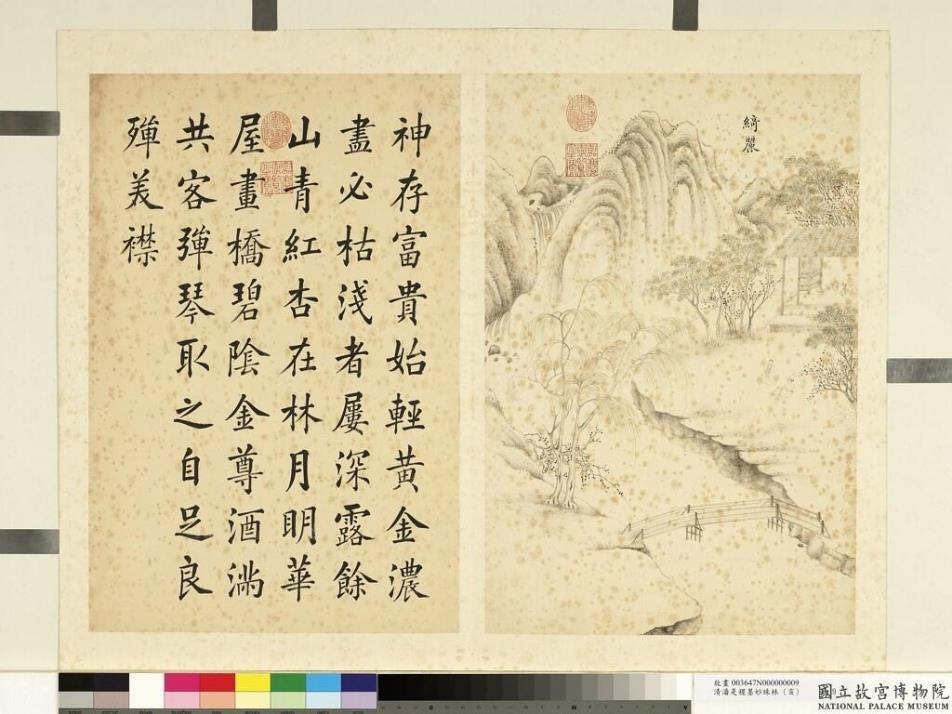 綺麗
神存富貴始輕黃金濃
盡必枯淺者屢深露餘
山青紅杏在林月明華
屋畫橋碧陰金尊酒滿
共客彈琴取之自足良
殫美襟
故畫 003647N000000009
清潘是稷墨妙珠林
國立故宮博物院
NATIONAL PALACE MUSEUM